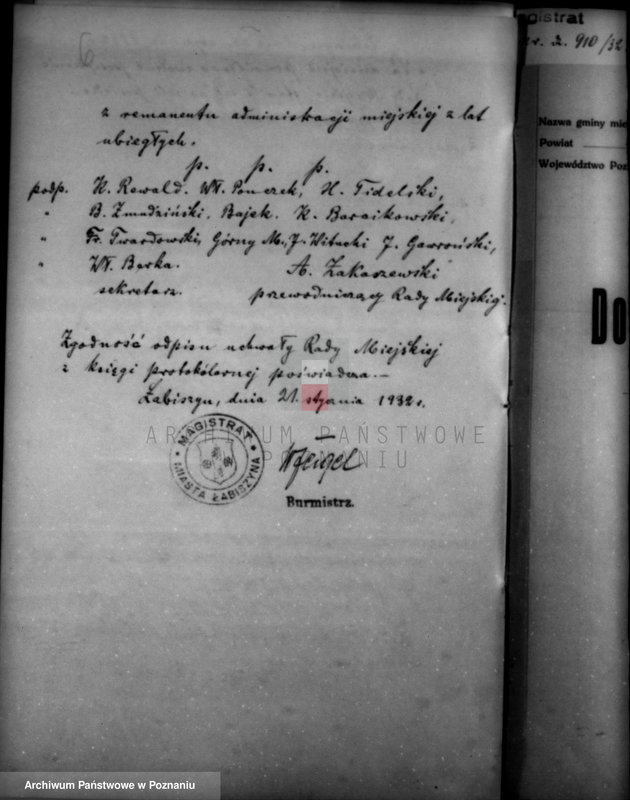 6
z remanentu administracji miejskiej z lat
ubiegłych.
p. p. p.
podp. K. Rewald. Wł. Ponczek, H. Fidelski,
" B. Żmudziński, Bajek. K. Baraikowski,
" Fr. Twardowski, Górny M., J. Witucki J. Gawroński,
" Wł. Barka. A. Zakaszewski
sekretarz. przewodniczący Rady Miejskiej.
Zgodność odpisu uchwały Rady Miejskiej
z księgi protokólarnej poświadcza.-
Łabiszyn, dnia 21. stycznia 1932 r.
ARCHIWUM PAŃSTWOWE
W POZNANIU
MAGISTRAT
MIASTA ŁABISZYNA
Burmistrz.
Magistrat
910/32
Nazwa gminy mie
Powiat
Województwo Poz
Do
Archiwum Państwowe w Poznaniu